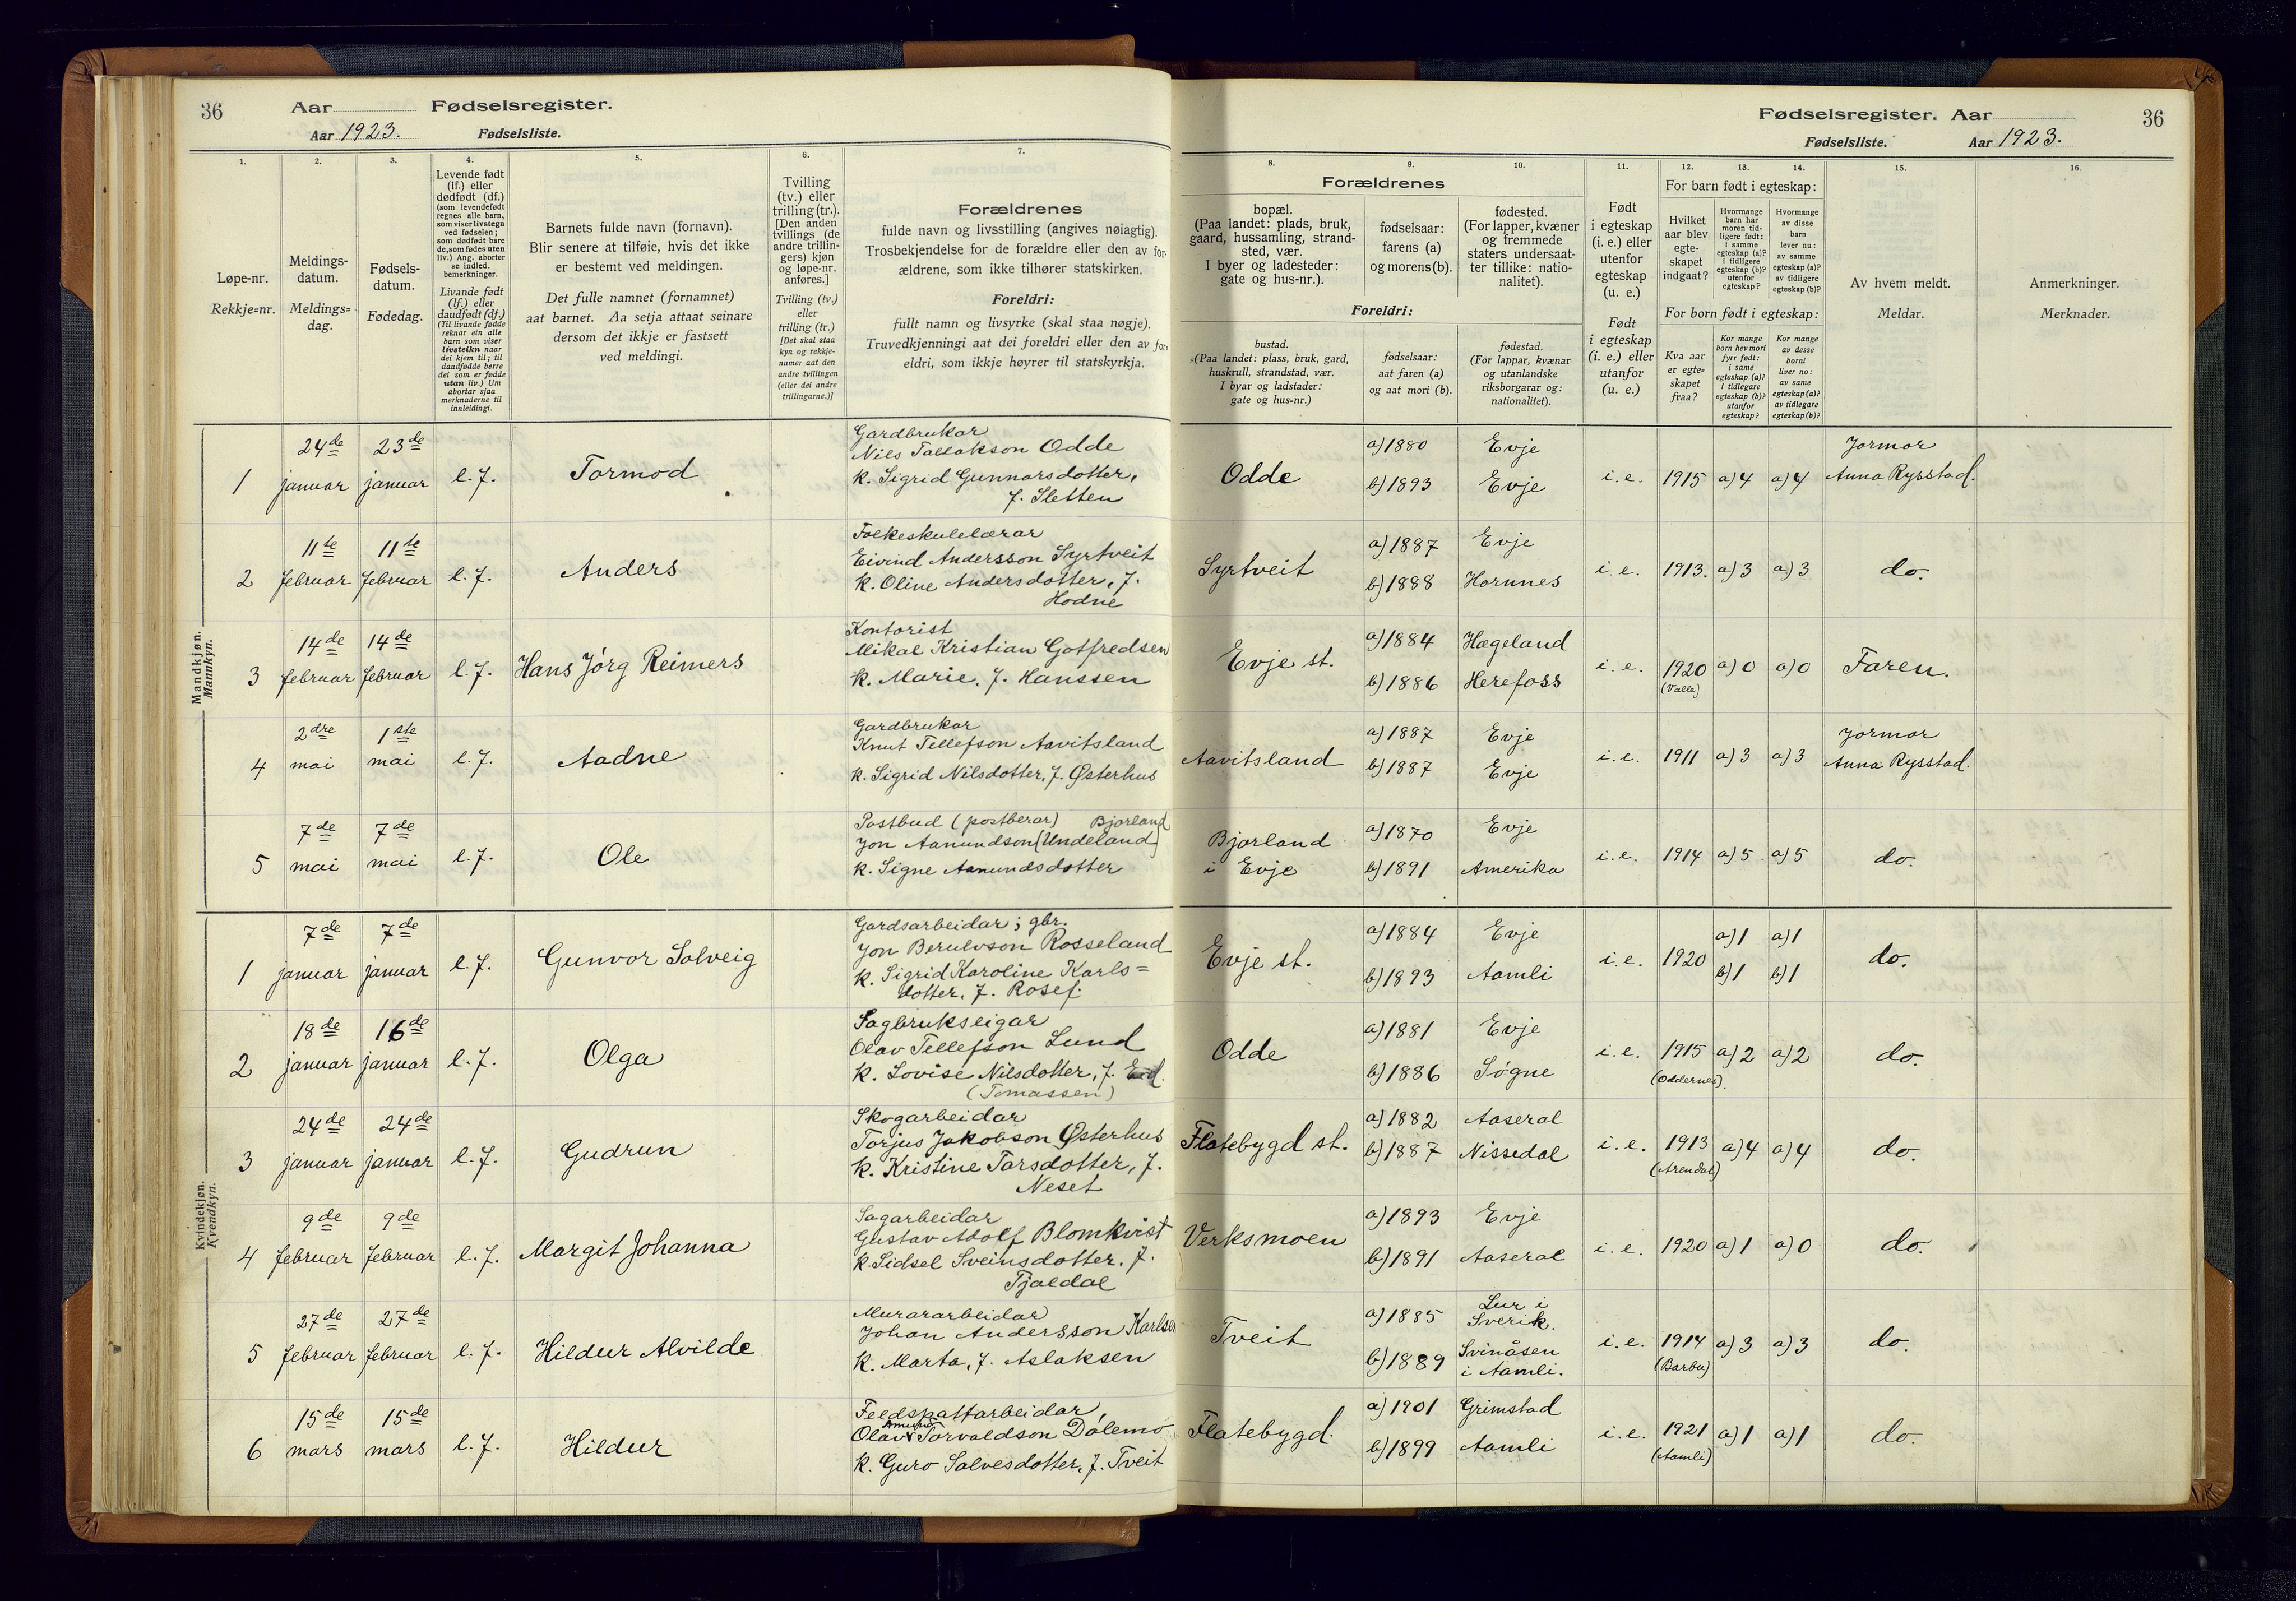 36 Aar Fødselsregister.
Aar 1923. Fødselsliste.
Fødselsregister. Aar 36
Fødselsliste. Aar 1923.
1. 2. 3. 4. 5. 6. 7.
Løpe-nr.
Rekkje=nr.
Meldings-
datum.
Meldings=
dag.
Fødsels-
datum.
Fødedag.
Levende født
(lf.) eller
dødfødt (df.)
(som levendefødt
regnes alle barn,
som viser livstegn
ved fødselen;
som dødfødt bare
de, som fødes uten
liv.) Ang. aborter
se indled.
bemerkninger.
Livande født
(lf.) eller
daudfødt (df.)
(Til livande fødde
reknar ein alle
barn som viser
livsteikn naar
dei kjem til; til
daudfødde berre
dei som er fødde
utan liv.) Um
abortar sjaa
merknaderne til
innleidingi.
Barnets fulde navn (fornavn).
Blir senere at tilføie, hvis det ikke
er bestemt ved meldingen.
Det fulle namnet (fornamnet)
aat barnet. Aa setja attaat seinare
dersom det ikkje er fastsett
ved meldingi.
Tvilling
(tv.) eller
trilling (tr.).
[Den anden
tvillings (de
andre trillin-
gers) kjøn
og løpe-nr.
anføres.]
Tvilling (tv.)
eller
trilling (tr.)
[Det skal staa
kyn og rekkje-
numer aat den
andre tvillingen
(eller dei andre
trillingarne.)]
Forældrenes
fulde navn og livsstilling (angives nøiagtig).
Trosbekjendelse for de forældre eller den av for-
ældrene, som ikke tilhører statskirken.
Foreldri:
fullt namn og livsyrke (skal staa nøgje).
Truvedkjenningi aat dei foreldri eller den av for-
eldri, som ikkje høyrer til statskyrkja.
8. 9. 10. 11. 12. 13. 14. 15. 16.
Forældrenes
bopæl.
(Paa landet: plads, bruk,
gaard, hussamling, strand-
sted, vær.
I byer og ladesteder:
gate og hus-nr.).
fødselsaar:
farens (a)
og morens (b).
fødested.
(For lapper, kvæner
og fremmede
staters undersaat-
ter tillike: natio-
nalitet).
Foreldri:
bustad.
(Paa landet: plass, bruk, gard,
huskrull, strandstad, vær.
I byar og ladstader:
gate og hus=nr.)
fødselsaar:
aat faren (a)
og aat mori (b).
fødestad.
(For lappar, kvænar
og utanlandske
riksborgarar og:
nationalitet).
Født
i egteskap
(i. e.) eller
utenfor
egteskap
(u. e.)
Født
i egteskap
(i. e.) eller
utanfor
(u. e.)
For barn født i egteskap:
Hvilket
aar blev
egte-
skapet
indgaat?
Hvormange
barn har
moren tid-
ligere født:
i samme
egteskap (a)?
i tidligere
egteskap (b)?
utenfor
egteskap?
Hvormange
av disse
barn
lever nu:
av samme
egteskap (a)?
av tidligere
egteskap (b)?
For born født i egteskap:
Kva aar
er egte-
skapet
fraa?
Kor mange
born hev mori
fyrr født:
i same
egteskap (a)?
i tidlegare
egteskap (b)?
utanfor
egteskap?
Kor mange
av desse
borni
liver no:
av same
egteskap (a)?
av tidlegare
egteskap (b)?
Av hvem meldt.
Meldar.
Anmerkninger.
Merknader.
Mandkjøn.
Mannkyn.
1 24de januar 23de januar l. f. Tormod
Gardbrukar
Nils Tallakson Odde
k. Sigrid Gunnarsdotter,
f. Sletten
Odde a) 1880 Evje
b) 1893 Evje
i. e. 1915 a) 4 a) 4 Jormor
Anna Rysstad.
2 11te februar 11te februar l. f. Anders
Folkeskulelærar
Eivind Andersson Syrtveit
k. Oline Andersdotter, f.
Hodne
Syrtveit a) 1887 Evje
b) 1888 Hornnes
i. e. 1913. a) 3 a) 3 do.
3 14de februar 14de februar l. f. Hans Jórg Reimers
Kontorist
Mikal Kristian Gotfredsen
k. Marie, f. Hanssen
Evje st. a) 1884 Hægeland
b) 1886 Herefoss
i. e. 1920 a) 0 a) 0 Faren.
(Valle)
4 2dre mai 1ste mai l. f. Aadne
Gardbrukar
Knut Tellefson Aavitsland
k. Sigrid Nilsdotter, f. Østerhus
Aavitsland a) 1887 Evje
b) 1887 Evje
i. e. 1911 a) 3 a) 3 Jormor
Anna Rysstad.
5 7de mai 7de mai l. f. Ole
Postbud (postberar) Bjorland
Jon Aanundson (Undeland)
k. Signe Aanundsdotter
Bjorland
i Evje
a) 1870 Evje
b) 1891 Amerika
i. e. 1914 a) 5 a) 5 do.
Kvindekjøn.
Kvendkyn.
1 7de januar 7de januar l. f. Gunvor Solveig
Gardsarbeidar; gbr.
Jon Berulvson Rosseland
k. Sigrid Karoline Karls=
dotter, f. Rosef.
Evje st. a) 1884 Evje
b) 1893 Aamli
i. e. 1920 a) 1 a) 1
b) 1 b) 1 do.
2 18de januar 16de januar l. f. Olga
Sagbrukseigar
Olav Tellefson Lund
k. Lovise Nilsdotter, f.
(Tomassen)
Odde a) 1881 Evje
b) 1886 Søgne
i. e. 1915 a) 2 a) 2 do.
(Oddernes).
3 24de januar 24de januar l. f. Gudrun
Skogarbeidar
Torjus Jakobson Østerhus
k. Kristine Tarsdotter, f.
Neset
Flatebygd st. a) 1882 Aaseral
b) 1887 Nissedal
i. e. 1913 a) 4 a) 4 do.
(Arendal)
4 9de februar 9de februar l. f. Margit Johanna
Sagarbeidar
Gustav Adolf Blomkvist
k. Sidsel Sveinsdotter, f.
Tjaldal
Verksmoen a) 1893 Evje
b) 1891 Aaseral
i. e. 1920 a) 1 a) 0 do.
5 27de februar 27de februar l. f. Hildur Alvilde
Murararbeidar
Johan Andersson Karlsen
k. Marta, f. Aslaksen
Tveit a) 1885 Lur i
Sverik.
b) 1889 Svinåsen
i Aamli.
i. e. 1914 a) 3 a) 3 do.
(Barbu)
6 15de mars 15de mars l. f. Hildur
Feldspattarbeidar,
Olav Torvaldson Dólemo
k. Guro Salvesdotter, f. Tveit
Flatebygd. a) 1901 Grimstad
b) 1899 Aamli
i. e. 1921 a) 1 a) 1 do.
(Aamli)